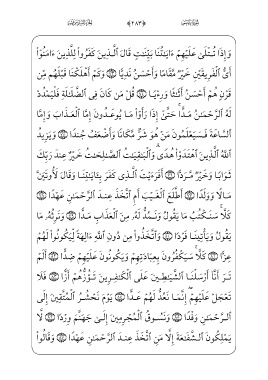 ﴿٢٨٣﴾
وَإِذَا تُتْلَىٰ عَلَيْهِمْ ءَايَٰتُنَا بَيِّنَٰتٍ قَالَ ٱلَّذِينَ كَفَرُوا۟ لِلَّذِينَ ءَامَنُوٓا۟
أَىُّ ٱلْفَرِيقَيْنِ خَيْرٌ مَّقَامًا وَأَحْسَنُ نَدِيًّا ۝ وَكَمْ أَهْلَكْنَا قَبْلَهُم مِّن
قَرْنٍ هُمْ أَحْسَنُ أَثَٰثًا وَرِءْيًا ۝ قُلْ مَن كَانَ فِى ٱلضَّلَٰلَةِ فَلْيَمْدُدْ
لَهُ ٱلرَّحْمَٰنُ مَدًّا حَتَّىٰٓ إِذَا رَأَوْا۟ مَا يُوعَدُونَ إِمَّا ٱلْعَذَابَ وَإِمَّا
ٱلسَّاعَةَ فَسَيَعْلَمُونَ مَنْ هُوَ شَرٌّ مَّكَانًا وَأَضْعَفُ جُندًا ۝ وَيَزِيدُ
ٱللَّهُ ٱلَّذِينَ ٱهْتَدَوْا۟ هُدًى وَٱلْبَٰقِيَٰتُ ٱلصَّٰلِحَٰتُ خَيْرٌ عِندَ رَبِّكَ
ثَوَابًا وَخَيْرٌ مَّرَدًّا ۝ أَفَرَءَيْتَ ٱلَّذِى كَفَرَ بِـَٔايَٰتِنَا وَقَالَ لَأُوتَيَنَّ
مَالًا وَوَلَدًا ۝ أَطَّلَعَ ٱلْغَيْبَ أَمِ ٱتَّخَذَ عِندَ ٱلرَّحْمَٰنِ عَهْدًا ۝
كَلَّا سَنَكْتُبُ مَا يَقُولُ وَنَمُدُّ لَهُۥ مِنَ ٱلْعَذَابِ مَدًّا ۝ وَنَرِثُهُۥ مَا
يَقُولُ وَيَأْتِينَا فَرْدًا ۝ وَٱتَّخَذُوا۟ مِن دُونِ ٱللَّهِ ءَالِهَةً لِّيَكُونُوا۟ لَهُمْ
عِزًّا ۝ كَلَّا سَيَكْفُرُونَ بِعِبَادَتِهِمْ وَيَكُونُونَ عَلَيْهِمْ ضِدًّا ۝ أَلَمْ
تَرَ أَنَّآ أَرْسَلْنَا ٱلشَّيَٰطِينَ عَلَى ٱلْكَٰفِرِينَ تَؤُزُّهُمْ أَزًّا ۝ فَلَا
تَعْجَلْ عَلَيْهِمْ إِنَّمَا نَعُدُّ لَهُمْ عَدًّا ۝ يَوْمَ نَحْشُرُ ٱلْمُتَّقِينَ إِلَى
ٱلرَّحْمَٰنِ وَفْدًا ۝ وَنَسُوقُ ٱلْمُجْرِمِينَ إِلَىٰ جَهَنَّمَ وِرْدًا ۝ لَّا
يَمْلِكُونَ ٱلشَّفَٰعَةَ إِلَّا مَنِ ٱتَّخَذَ عِندَ ٱلرَّحْمَٰنِ عَهْدًا ۝ وَقَالُوا۟